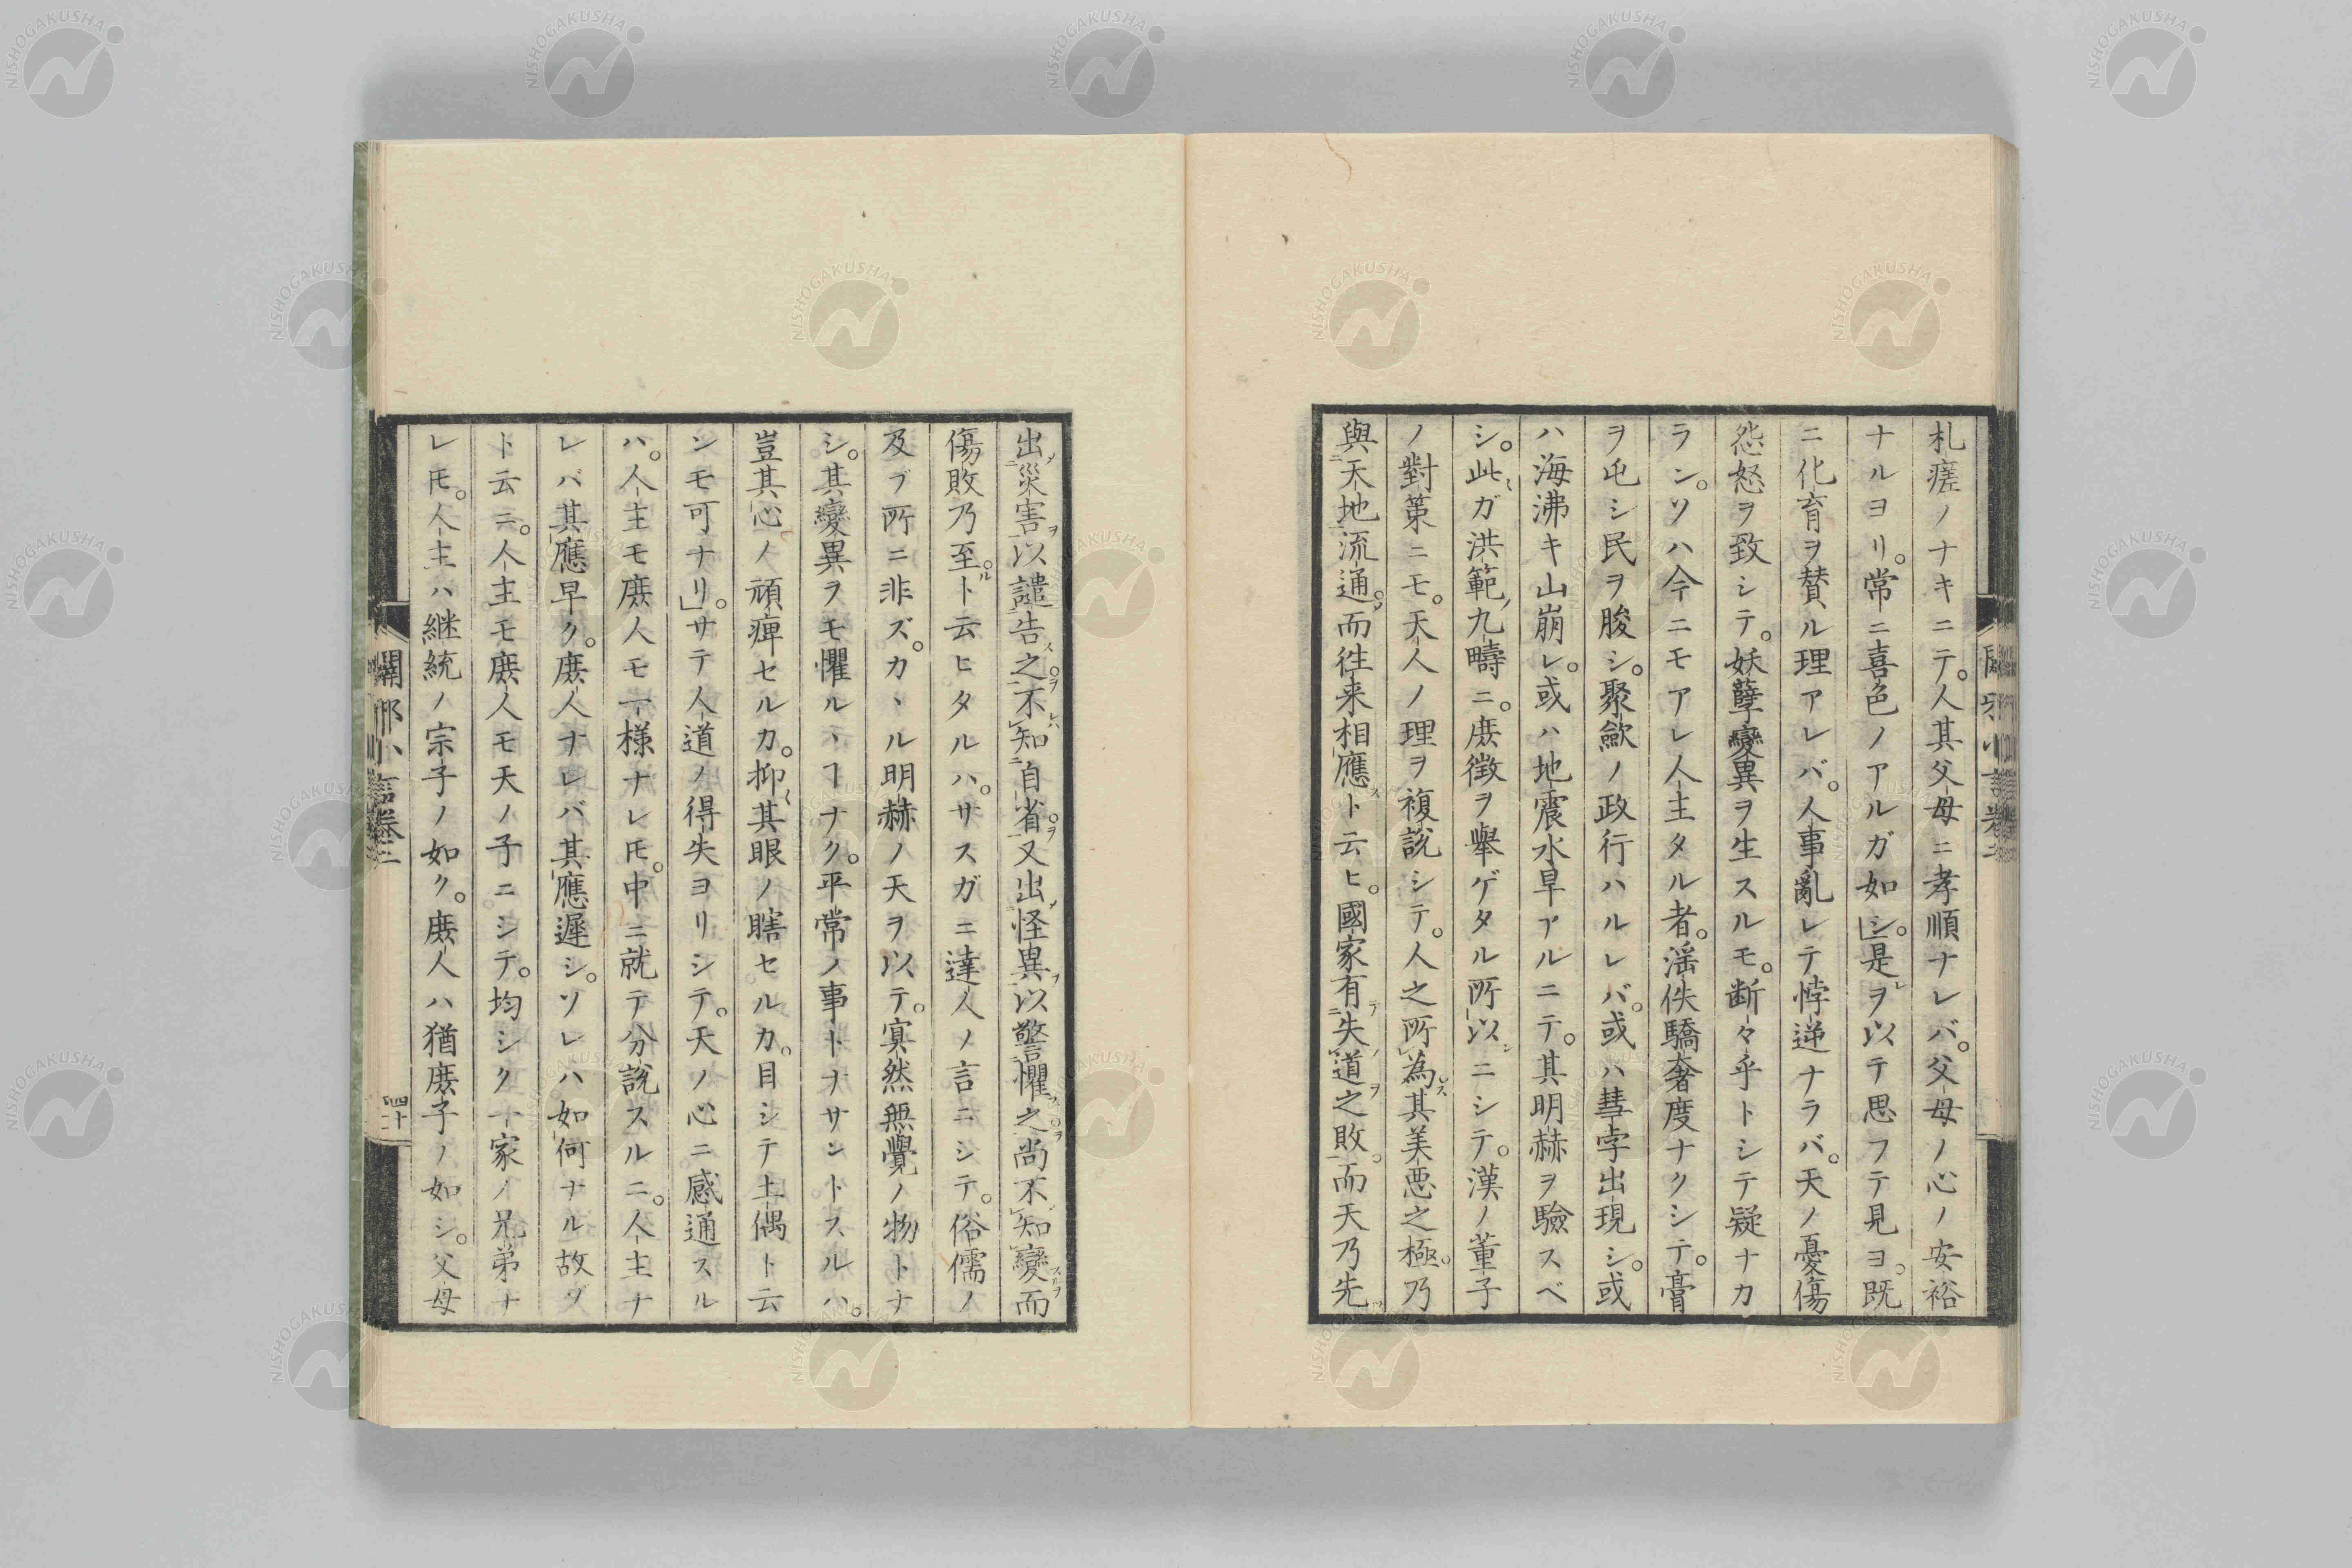 札瘥ノナキニテ。人其父母ニ孝順ナレバ。父母ノ心ノ安裕
ナルヨリ。常ニ喜色ノアルガ如シ。是ヲ以テ思フテ見ヨ。既
ニ化育ヲ賛ル理アレバ。人事亂レテ悖逆ナラバ。天ノ憂傷
怨怒ヲ致シテ。妖孽變異ヲ生スルモ。断々乎トシテ疑ナカ
ラン。ソハ今ニモアレ人主タル者。淫佚驕奢度ナクシテ。膏
ヲ屯シ民ヲ朘シ。聚歛ノ政行ハルレバ。或ハ彗孛出現シ。或
ハ海沸キ山崩レ。或ハ地震水旱アルニテ。其明赫ヲ驗スベ
シ。此ガ洪範九疇ニ。庶徴ヲ擧ゲタル所以ニシテ。漢ノ董子
ノ對策ニモ。天人ノ理ヲ複説シテ。人之所為其美惡之極。乃
與天地流通。而往来相應ト云ヒ。國家有失道之敗。而天乃先
出災害以譴告之。不知自省。又出怪異以警懼之。尚不知變而
傷敗乃至ト云ヒタルハ。サスガニ達人ノ言ニシテ。俗儒ノ
及ブ所ニ非ズ。カヽル明赫ノ天ヲ以テ。冥然無覺ノ物トナ
シ。其變異ヲモ懼ルヽヿナク。平常ノ事トナサントスルハ。
豈其心ノ頑痺セルカ。抑其眼ノ瞎セルカ。目シテ土偶ト云
シモ可ナリ。サテ人道ノ得失ヨリシテ。天ノ心ニ感通スル
ハ。人主モ庶人モ一様ナレ𪜈。中ニ就テ分説スルニ。人主ナ
レバ其應早ク。庶人ナレバ其應遲シ。ソレハ如何ナル故ゾ
ト云ニ。人主モ庶人モ天ノ子ニシテ。均シク一家ノ兄弟ナ
レ𪜈。人主ハ継統ノ宗子ノ如ク。庶人ハ猶庶子ノ如シ。父母
闢邪小言卷二
四十二
NISHOGAKUSHA